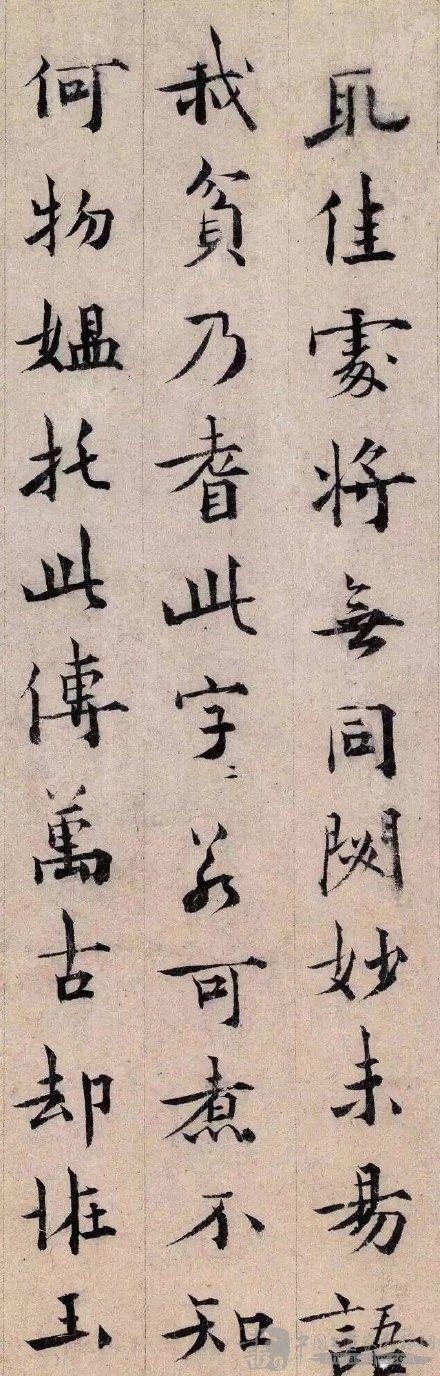 取佳處將無同妙未易語
我貧乃耆此字〻若可煮不知
何物媪托此傳萬古却恠玉